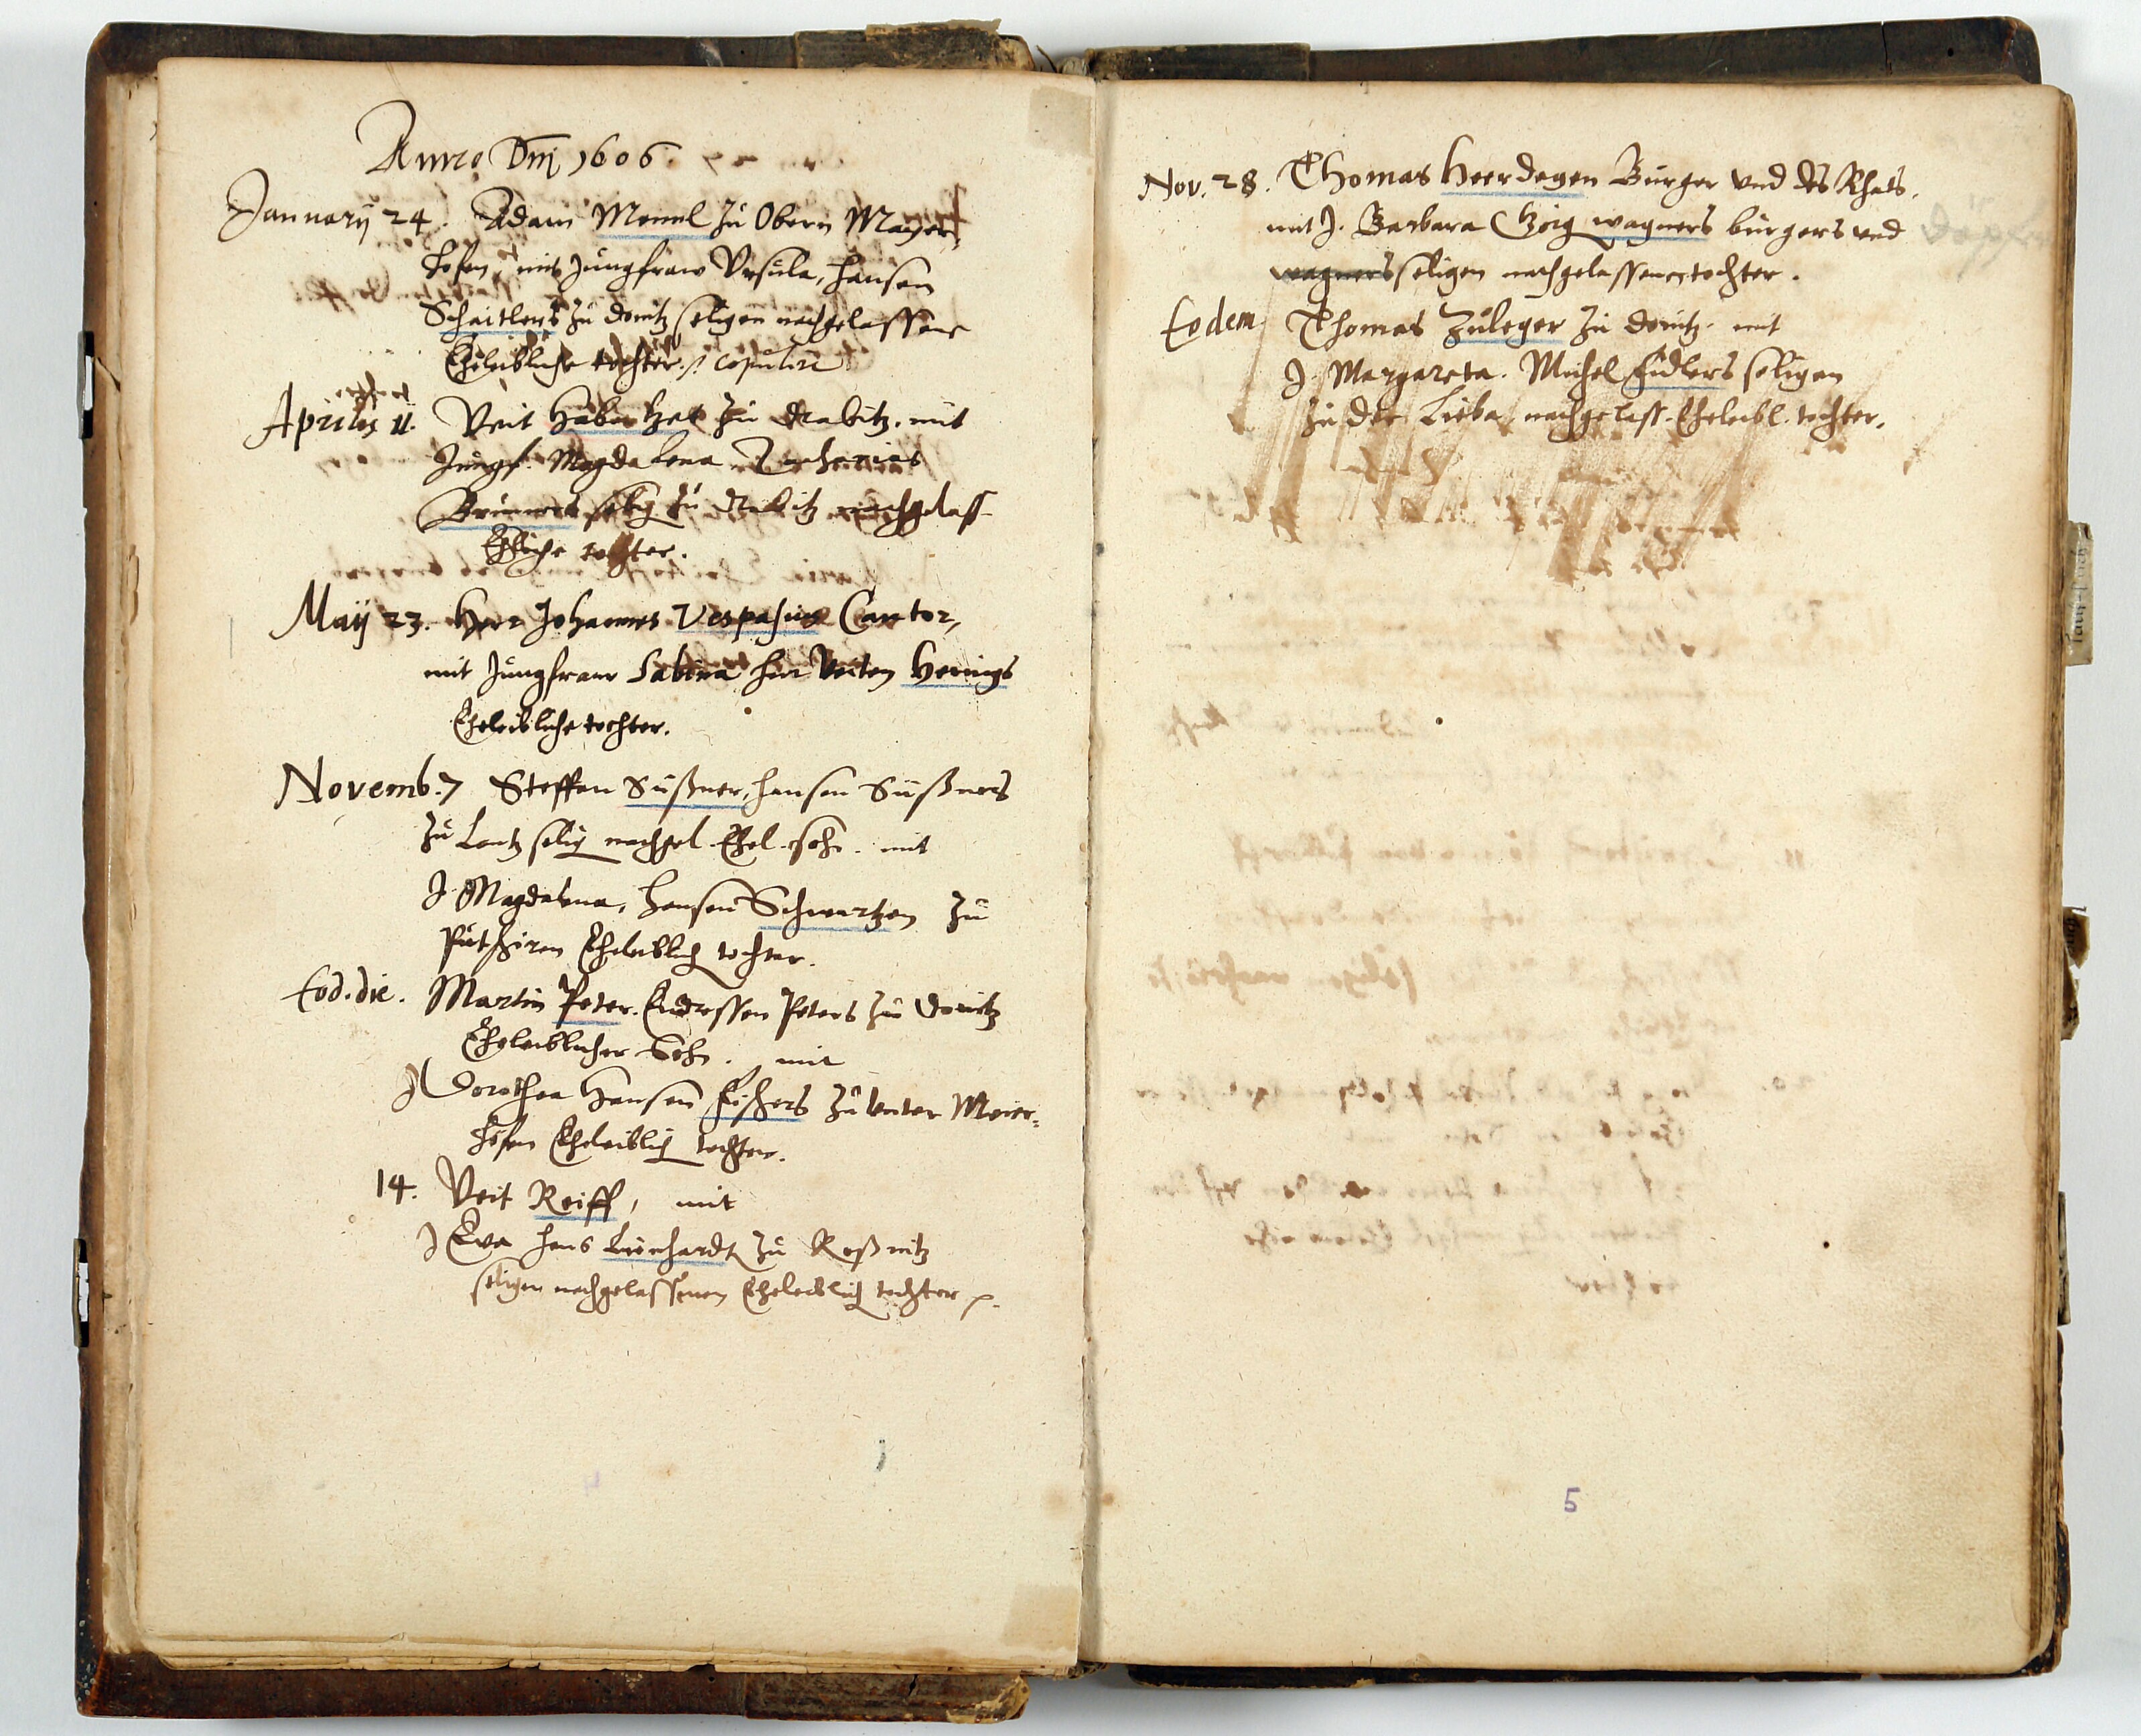 Anno Dni 1606.
Januarij 24. Adam Mennl zu Obern Mayer-
hofen, mit Jungfraw Ursula, Hansen
Schaitlers zu Donitz seligen nachgelassene
Eheleibliche tochter. copuliret
Aprilis 11. Veit Haber zu Drabitz. mit
Jungf. Magdalena Zacharias
Brunners selig zu Drabitz nachgelass
Eheliche tochter.
Maij 23. Herr Johannes Vespasius Cantor,
mit Jungfraw Sabina Herr Veiten Hennigs
Eheleibliche tochter.
Novemb. 7 Steffan Süßner, Hansen Süßners
zu selig nachgel. Ehel. sohn. mit
J. Magdalena, Hansen Schwartzen zu
Putschiren Eheleiblich tochter.
Eod. die. Martin Peter. Endressen Peters zu Donitz
Eheleiblicher Sohn. mit
J Dorothea Hansen Fischers zu Unter Meier-
hofen Eheleiblich tochter.
14. Veit Reiff, mit
J Eva Hans Leonhardt zu Roßnitz
seligen nachgelassenen Eheleiblich tochter
Nov. 28. Thomas Heerdegen Burger und des Rhats.
mit J. Barbara Georg wagners burgers und
wagners seligen nachgelassenen tochter.
Eodem Thomas Zuleger zu Donitz. mit
J. Margareta. Michel Fidlers seligen
zu der Lieba nachgelass. Eheleibl. tochter.
5